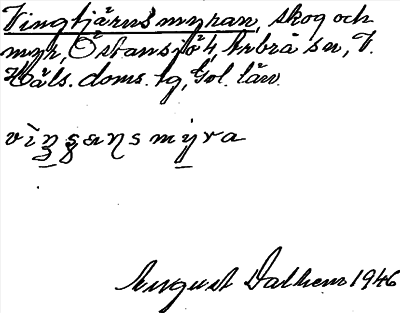 Vingtjärnsmyran, skog och
myr, Östansjö 4, Arbrå sn, V.
Häls. doms. tg, Gvl. län.
vìŋʂæɳsmyra
August Dalhem 1946